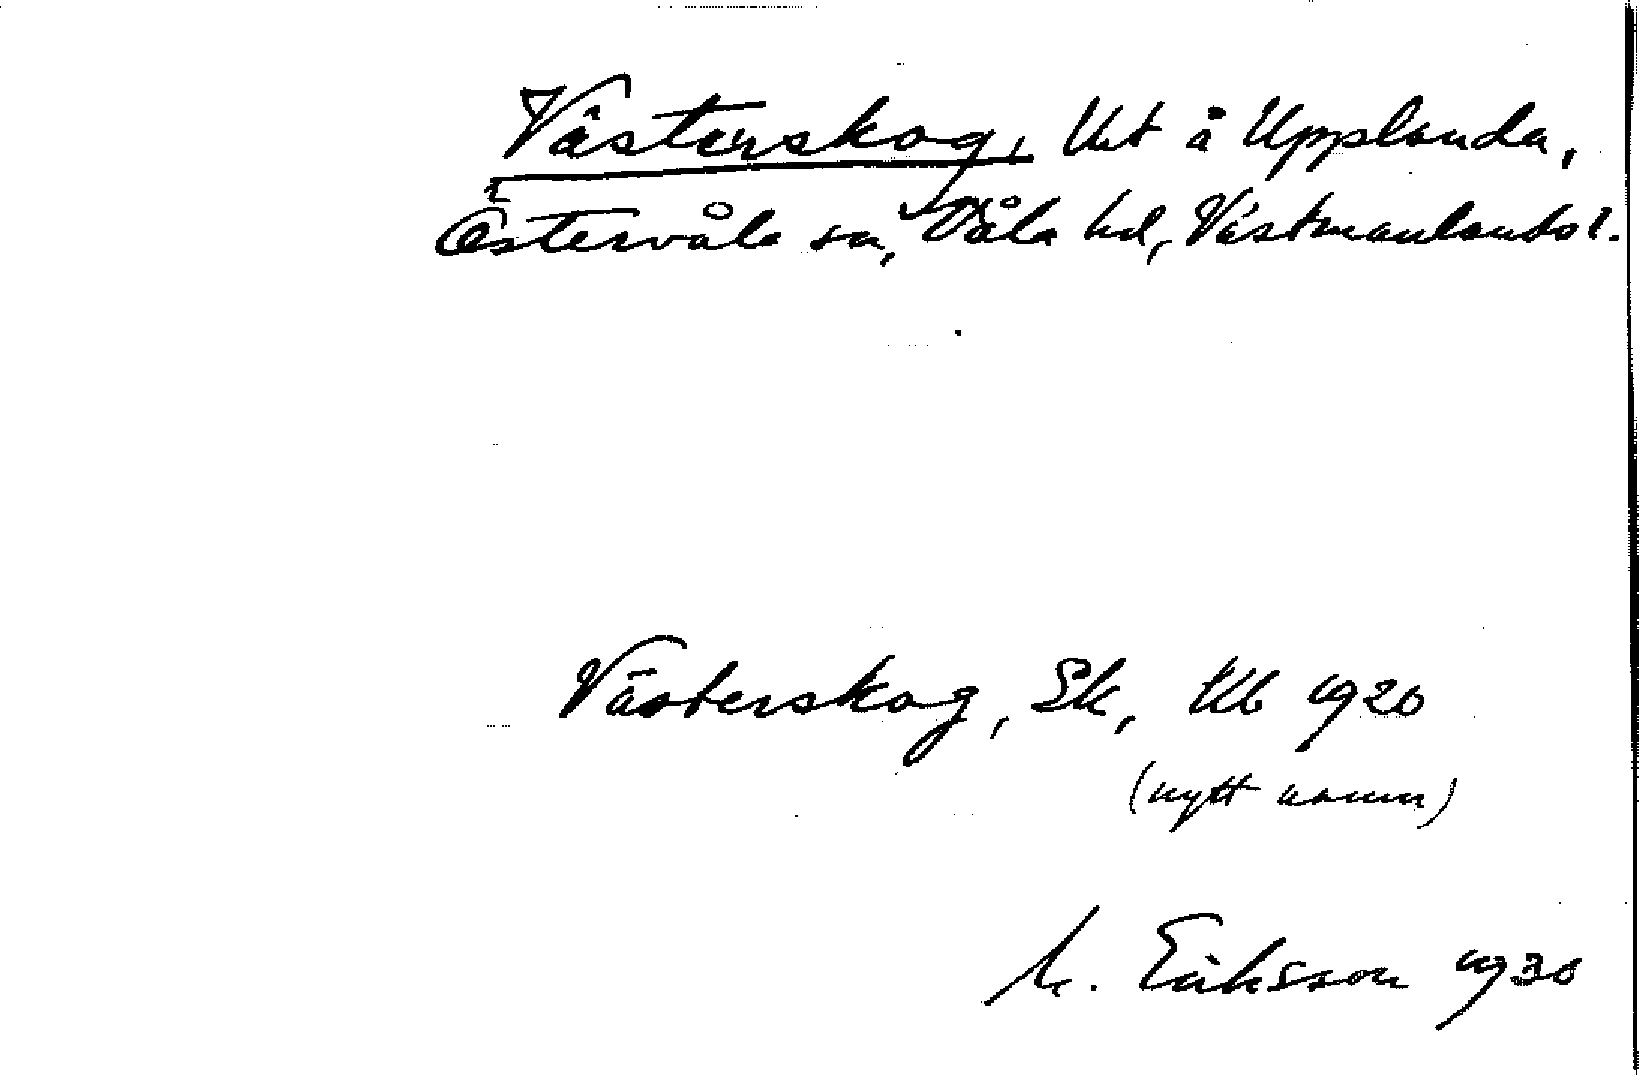 Västerskog, Ut å Upplanda,
Östervåla sn, Våla hd, Västmanlands l.
Västerskog, Sk, Kb 1920
(nytt namn)
M. Eriksson 1930